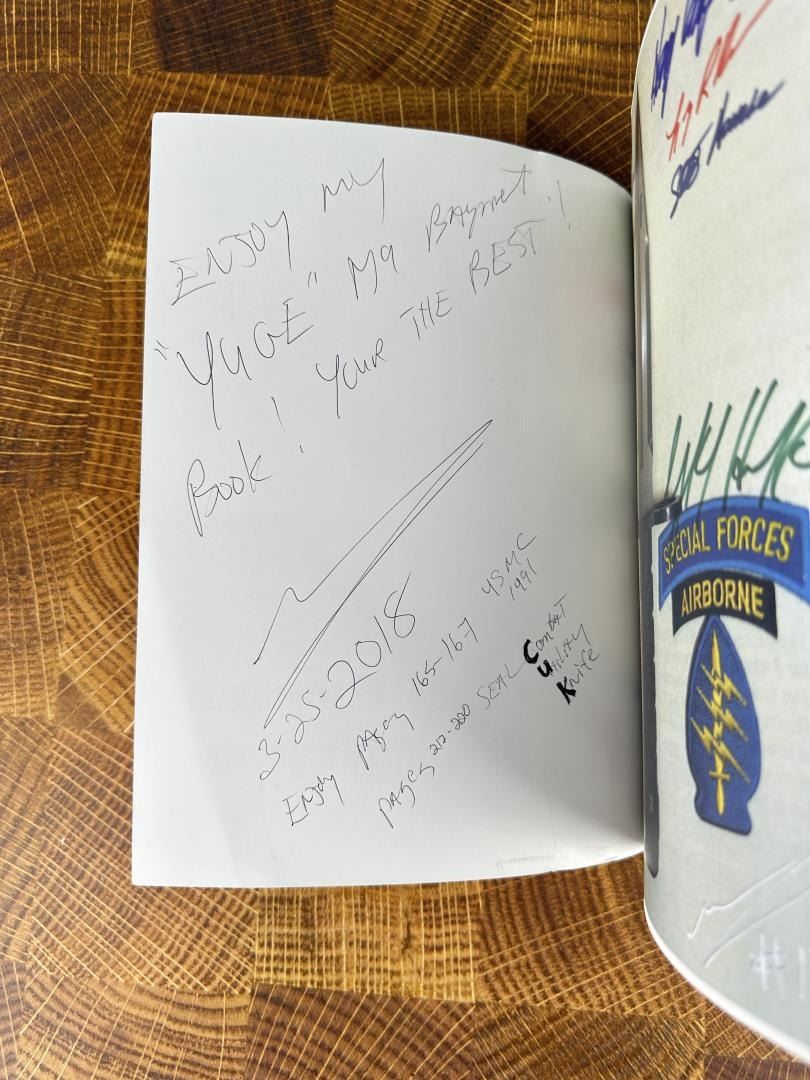 ENJOY MY
"YUGE" M9 BAYONET
BOOK! YOUR THE BEST!
3-25-2018
ENJOY pages 165-167 USMC
1991
PAGES 212-200 SEAL Combat
Utility
Knife
SPECIAL FORCES
AIRBORNE
#1